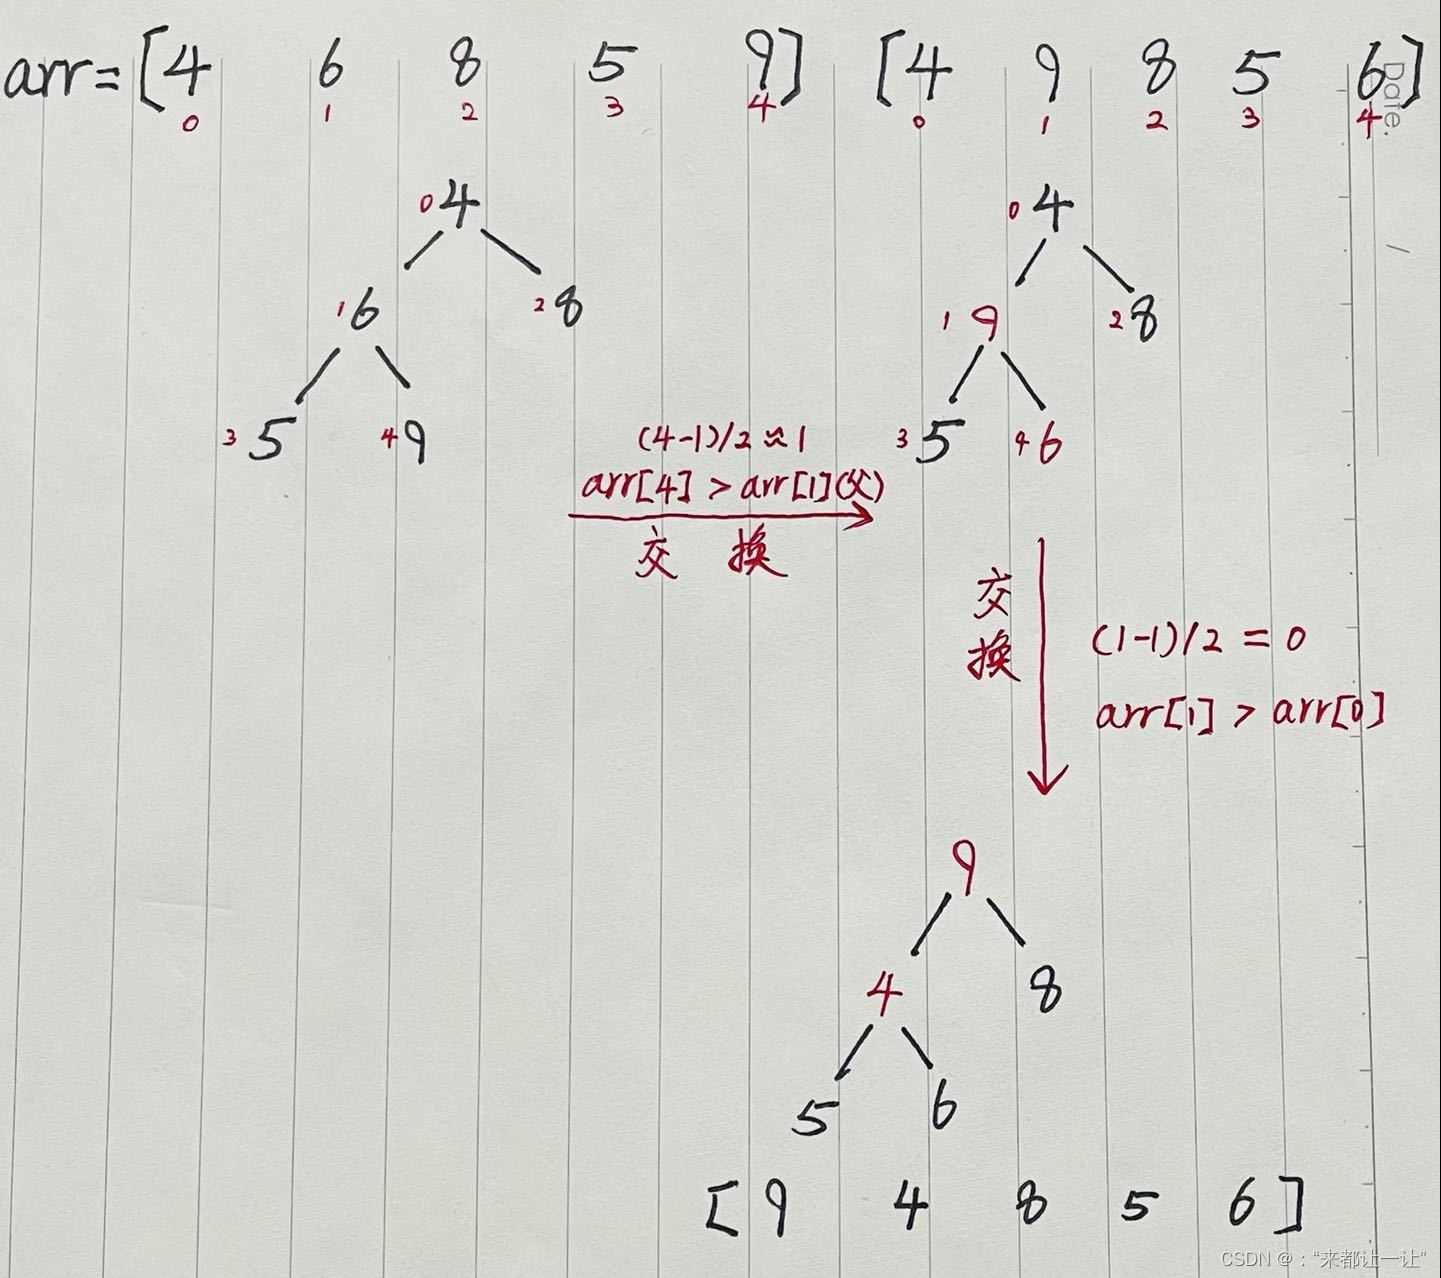 arr=[4 6 8 5 9] [4 9 8 5 6]
0 1 2 3 4 0 1 2 3 4
Date.
04 04
16 28 19 28
35 49 35 46
(4-1)/2≈1
arr[4] > arr[1](父)
交 换
交换
(1-1)/2 = 0
arr[1] > arr[0]
9
4 8
5 6
[9 4 8 5 6]
CSDN @：“来都让一让”